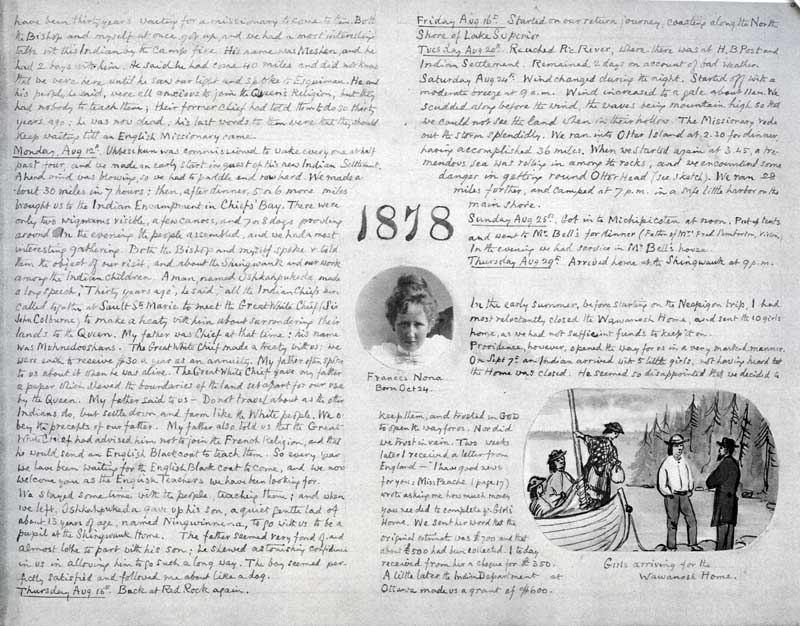 have been thirty years waiting for a missionary to come to them. Both
the Bishop and myself at once got up, and we had a most interesting
talk with this Indian by the Camp fire. His name was Mesher, and he
had 2 boys with him. He said he had come 40 miles and did not know
that we were here until he saw our light and spoke to Esquimau. He and
his people, he said, were all anxious to join the Queen's Religion, but they
had nobody to teach them; their former Chief had told them to do so thirty
years ago; he was now dead, his last words to them were that they should
keep waiting till an English Missionary came.
Monday, Aug 12th. Uhbesekun was commissioned to wake every one at half
past four, and we made an early start in quest of this new Indian Settlement.
A head wind was blowing, so we had to paddle and row hard. We made a
bout 30 miles in 7 hours; then, after dinner, 5 or 6 more miles
brought us to the Indian Encampment in Chiefs' Bay. There were
only two wigwams visible, a few canoes, and 7 or 8 dogs prowling
around. In the evening the people assembled, and we had a most
interesting gathering. Both the Bishop and myself spoke & told
them the object of our visit, and about the Shingwauk and our work
among the Indian children. A man, named Oshkahpukeda, made
a long speech, "Thirty years ago", he said, "all the Indian Chiefs were
called together at Sault St Marie to meet the Great White Chief (Sir
John Colburne) to make a treaty with him about surrendering their
lands to the Queen. My father was Chief at that time; his name
was Muhnedooshans. The Great White Chief made a treaty with us; we
were each to receive $30 a year as an annuity. My father often spoke
to us about it when he was alive. The Great White Chief gave my father
a paper which shewed the boundaries of the land set apart for our use
by the Queen. My father said to us – Do not travel about as the other
Indians do, but settle down and farm like the White people. We o-
bey the precepts of our father. My father also told us that the Great
White Chief had advised him not to join the French Religion, and that
he would send an English Black coat to teach them. So every year
we have been waiting for the English Black coat to come, and we now
welcome you as the English Teachers we have been looking for.
We stayed some time with the people, teaching them; and when
we left, Oshkahpukeda gave up his son, a quiet gentle lad of
about 13 years of age, named Ningwinnena, to go with us to be a
pupil at the Shingwauk Home. The father seemed very fond of, and
almost lothe to part with his son; he shewed astonishing confidence
in us in allowing him to go such a long way. The boy seemed per-
fectly satisfied and followed me about like a dog.
Thursday Aug 15th. Back at Red Rock again.
Friday Aug 16th. Started on our return journey, coasting along the North
Shore of Lake Superior
Tuesday Aug 20th. Reached Pic River, where there was a H.B. Post and
Indian Settlement. Remained 2 days on account of bad weather.
Saturday Aug 24th. Wind changed during the night. Started off with a
moderate breeze at 9 a.m. Wind increased to a gale about 11 a.m. We
scudded along before the wind, the waves being mountain high so that
we could not see the land when in their hollow. The Missionary rode
out the storm splendidly. We ran into Otter Island at 2.30 for dinner,
having accomplished 36 miles. When we started again at 3.45, a tre-
mendous sea was rolling in among the rocks, and we encountered some
danger in getting round Otter Head (see sketch). We ran 28
miles further, and camped at 7 p.m. in a safe little harbor on the
main shore.
Sunday Aug 25th. Got in to Michipicoten at noon. Put up tents
and went to Mr Bell's for dinner (Father of Mrs Fred
In the evening we had service in Mr Bell's house.
Thursday Aug 29th. Arrived home at the Shingwauk at 9 p.m.
1878
Frances Nona
Born Oct 24.
In the early summer, before starting on the Neepigon trip, I had
most reluctantly closed the Wawanosh Home, and sent the 10 girls
home, as we had not sufficient funds to keep it on.
Providence, however, opened the way for us in a very marked manner.
On Sept 7th an Indian arrived with 5 little girls, not having heard that
the Home was closed. He seemed so disappointed that we decided to
keep them, and trusted in GOD
to open the way for us. Nor did
we trust in vain. Two weeks
later I received a letter from
England – "I have good news
for you; Miss Peache (page 17)
wrote asking me how much money
you needed to complete yr Girls'
Home. We sent her word that the
original estimate was £700 and that
about £500 had been collected. I today
received from her a cheque for £350.
A little later the Indian Department at
Ottawa made us a grant of $600.
Girls arriving for the
Wawanosh Home.